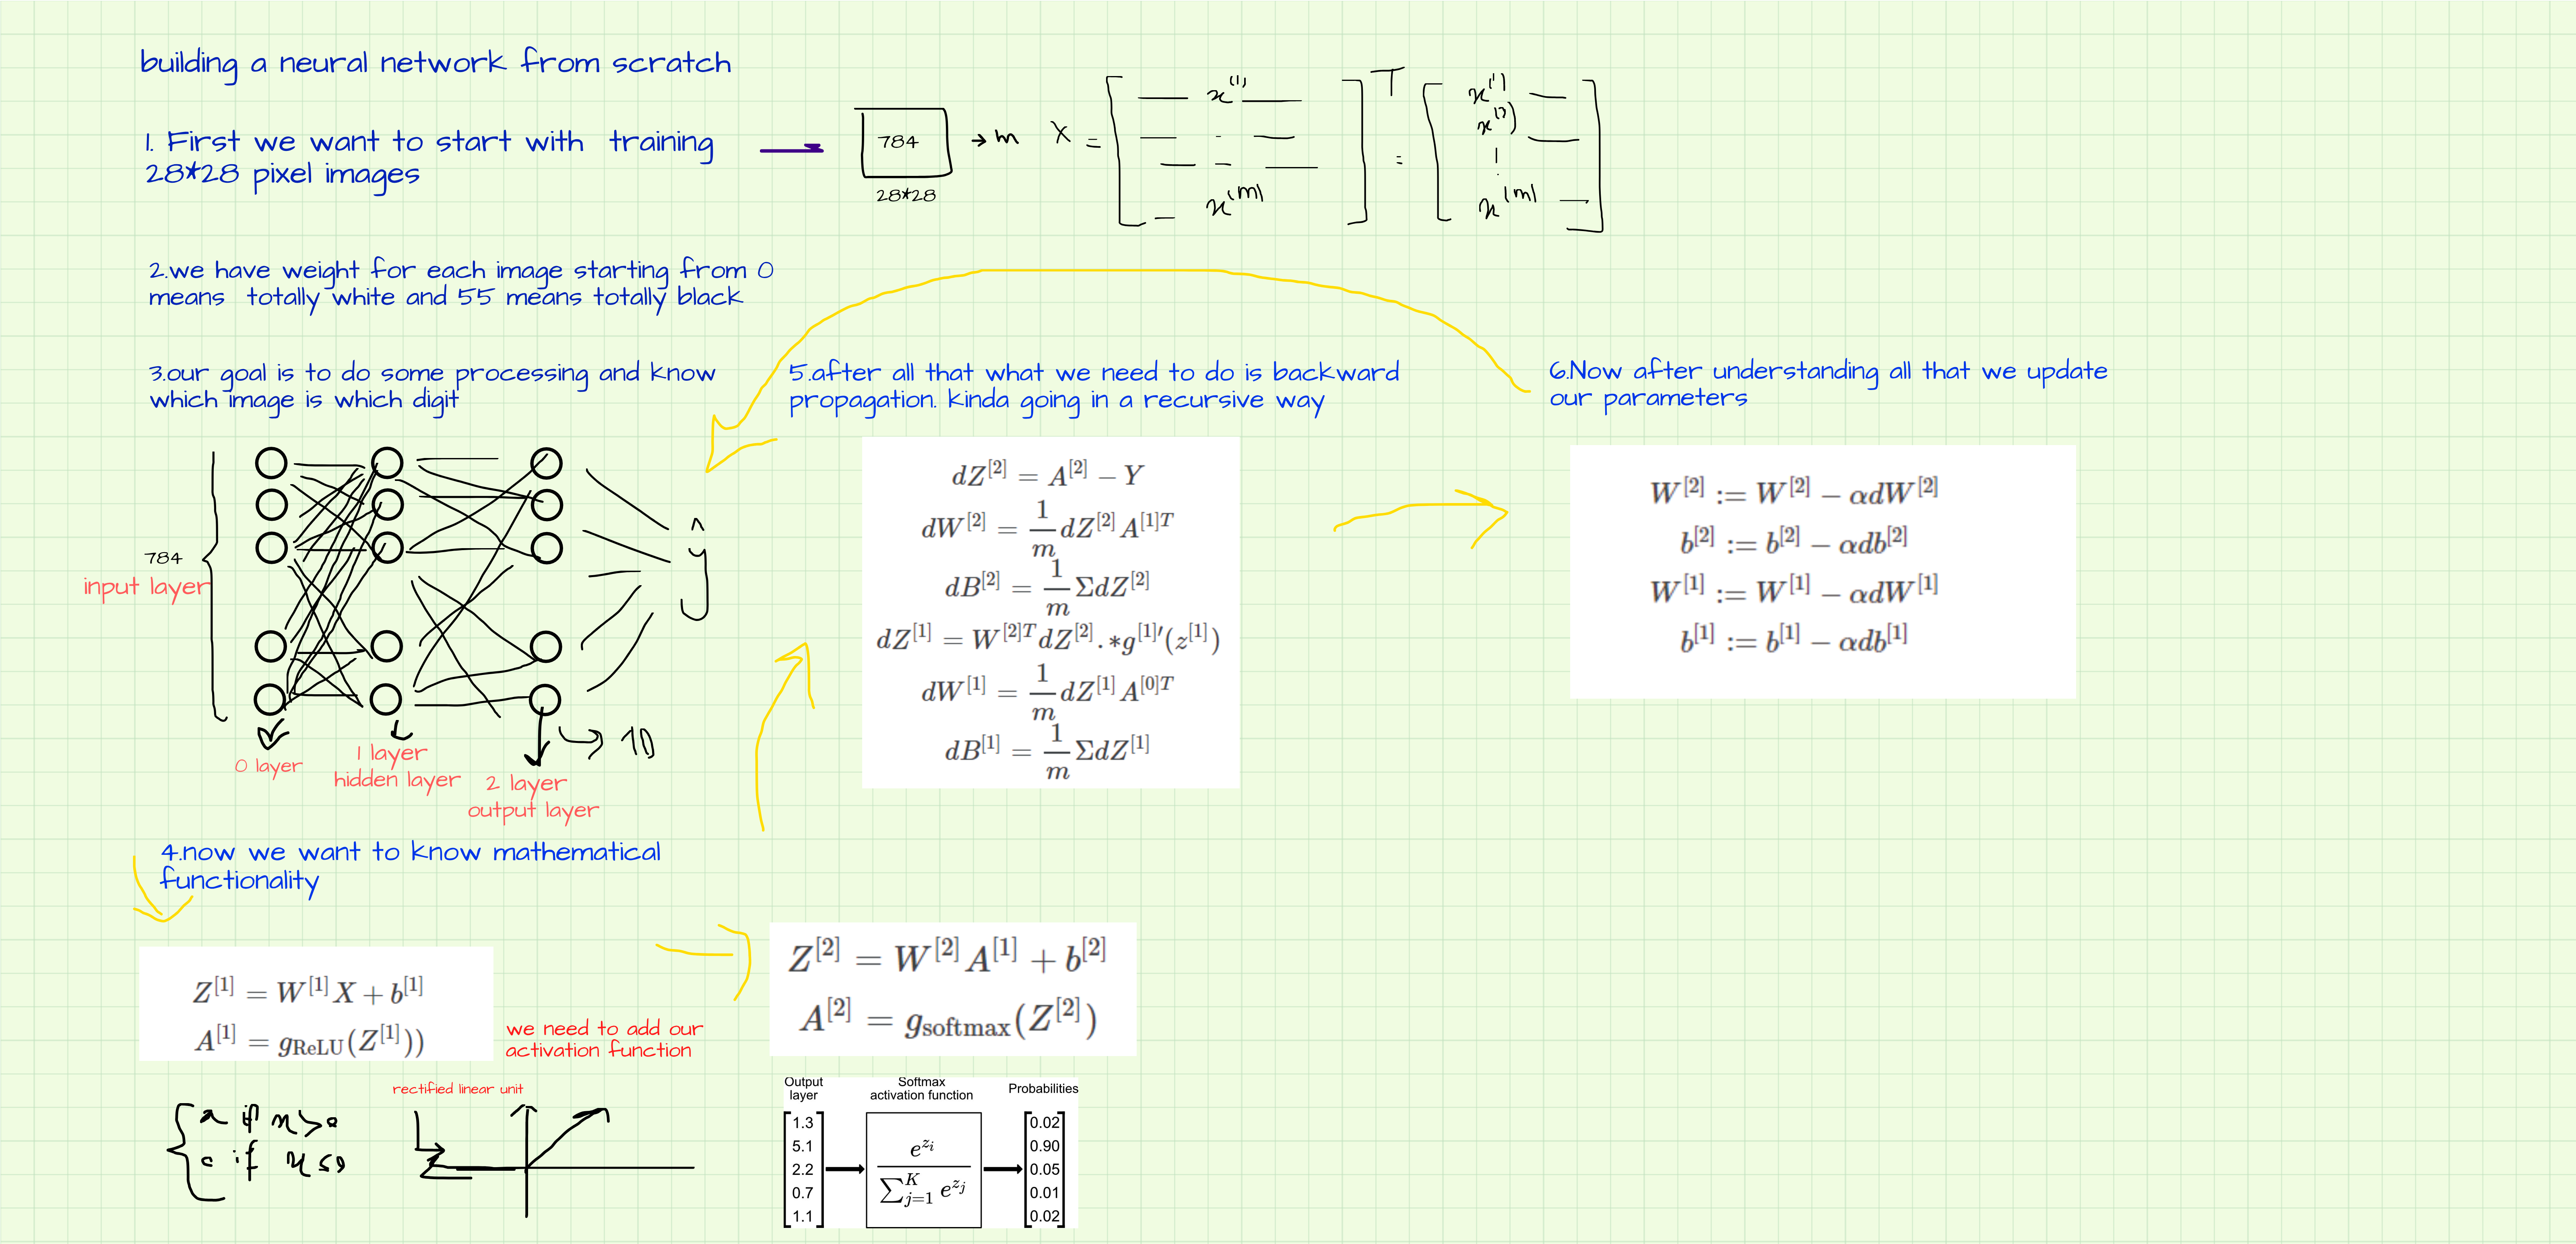 building a neural network from scratch
1. First we want to start with training
28*28 pixel images
784
28*28
→ m
X = [ x^(1) ... x^(m) ]^T = [ x^(1) x^(2) ... x^(m) ]
2.we have weight for each image starting from 0
means totally white and 55 means totally black
3.our goal is to do some processing and know
which image is which digit
784
input layer
ŷ
10
0 layer
1 layer
hidden layer
2 layer
output layer
4.now we want to know mathematical
functionality
Z^[1] = W^[1] X + b^[1]
A^[1] = g_ReLU(Z^[1]))
we need to add our
activation function
rectified linear unit
x if x > 0
0 if x ≤ 0
Z^[2] = W^[2] A^[1] + b^[2]
A^[2] = g_softmax(Z^[2])
Output
layer
Softmax
activation function
Probabilities
1.3
5.1
2.2
0.7
1.1
e^{z_i} / ∑_{j=1}^{K} e^{z_j}
0.02
0.90
0.05
0.01
0.02
5.after all that what we need to do is backward
propagation. kinda going in a recursive way
dZ^[2] = A^[2] − Y
dW^[2] = 1/m dZ^[2] A^[1]T
dB^[2] = 1/m ΣdZ^[2]
dZ^[1] = W^[2]T dZ^[2] .* g^[1]′(z^[1])
dW^[1] = 1/m dZ^[1] A^[0]T
dB^[1] = 1/m ΣdZ^[1]
6.Now after understanding all that we update
our parameters
W^[2] := W^[2] − αdW^[2]
b^[2] := b^[2] − αdb^[2]
W^[1] := W^[1] − αdW^[1]
b^[1] := b^[1] − αdb^[1]